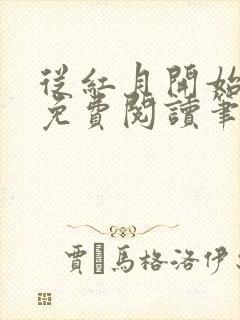 從紅月開始
免費閱讀筆
賈·馬格洛伊